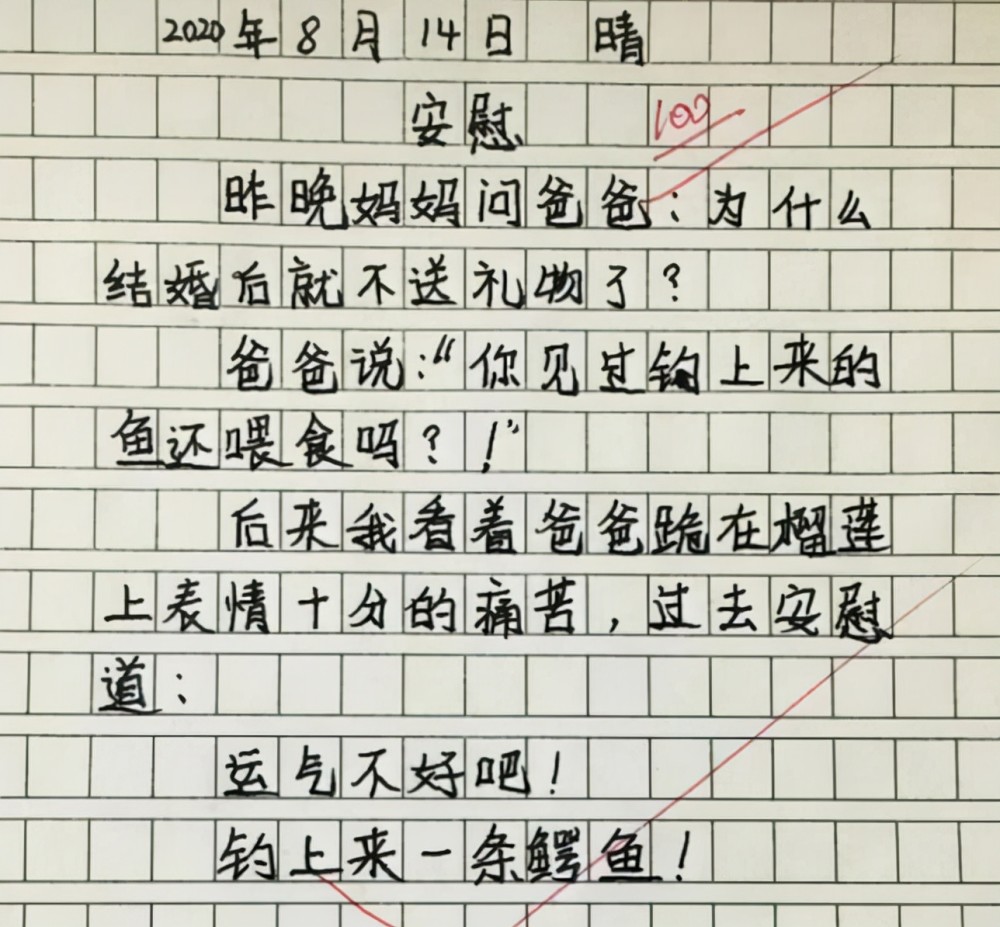 2020年8月14日 晴
安慰 100
昨晚妈妈问爸爸:为什么
结婚后就不送礼物了?
爸爸说:“你见过钩上来的
鱼还喂食吗?!”
后来我看着爸爸跪在榴莲
上表情十分的痛苦,过去安慰
道:
运气不好吧!
钓上来一条鳄鱼!